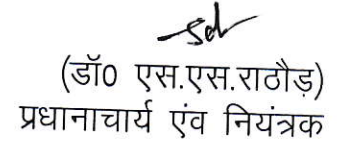 Sd/
(डॉ0 एस.एस.राठौड़)
प्रधानाचार्य एंव नियंत्रक